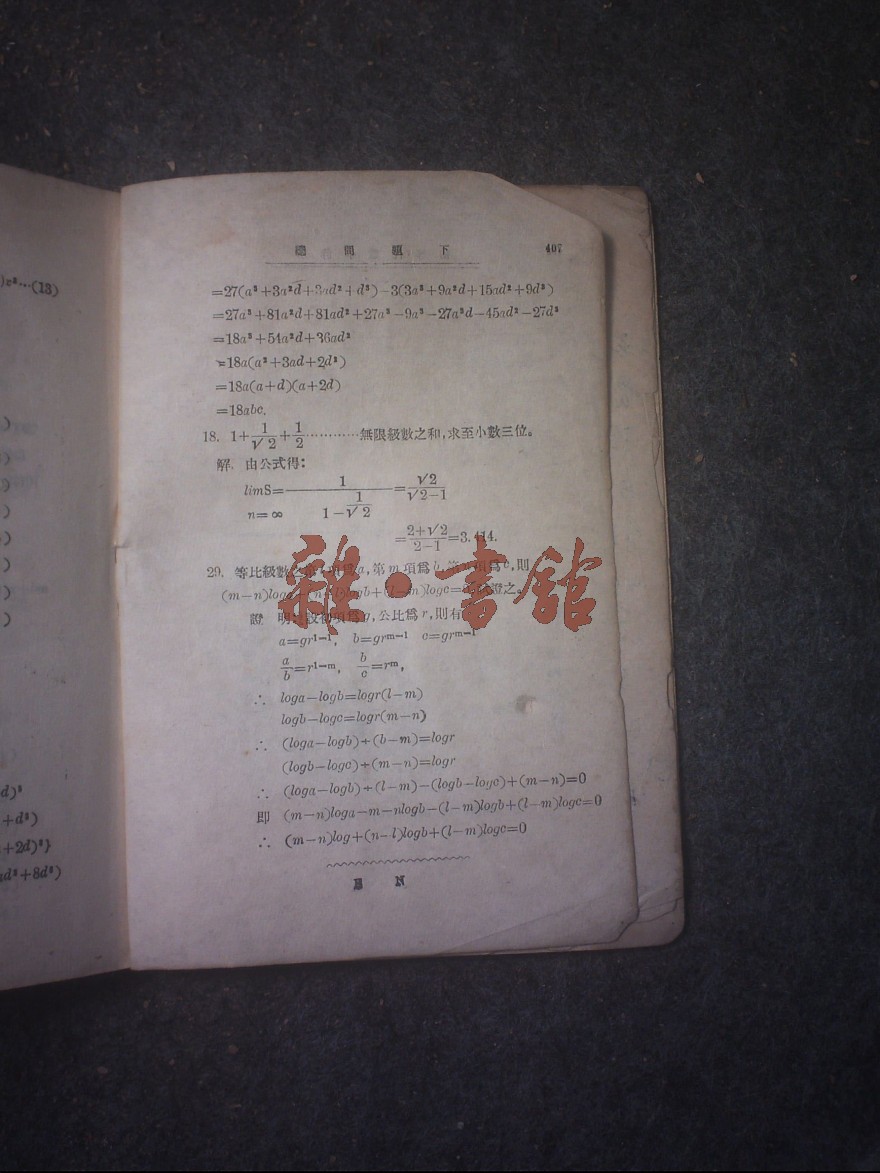 )c³…(13)
)
)
)
)
)
)
)
)
d)³
+d³)
+2d)³}
ad²+8d³)
問題 下 407
=27(a³+3a²d+3ad²+d³)−3(3a³+9a²d+15ad²+9d³)
=27a³+81a²d+81ad²+27a³−9a³−27a²d−45ad²−27d³
=18a³+54a²d+36ad²
=18a(a²+3ad+2d²)
=18a(a+d)(a+2d)
=18abc.
18. 1+1/√2+1/2…………無限級數之和,求至小數三位。
解. 由公式得:
limS=1/(1−1/√2)=√2/(√2−1)
n=∞
=(2+√2)/(2−1)=3.414.
29. 等比級數之第 項爲a,第m項爲b,第 項爲c,則
(m−n)loga+(n−l)logb+(l−m)logc= 證之。
證 明: 設初項爲g,公比爲r,則有
a=gr¹⁻¹, b=grᵐ⁻¹ c=grᵐ⁻¹
a/b=r¹⁻ᵐ, b/c=rᵐ,
∴ loga−logb=logr(l−m)
logb−logc=logr(m−n)
∴ (loga−logb)÷(b−m)=logr
(logb−logc)÷(m−n)=logr
∴ (loga−logb)÷(l−m)−(logb−logc)÷(m−n)=0
即 (m−n)loga−m−nlogb−(l−m)logb+(l−m)logc=0
∴ (m−n)log+(n−l)logb+(l−m)logc=0
E N
雜·書館